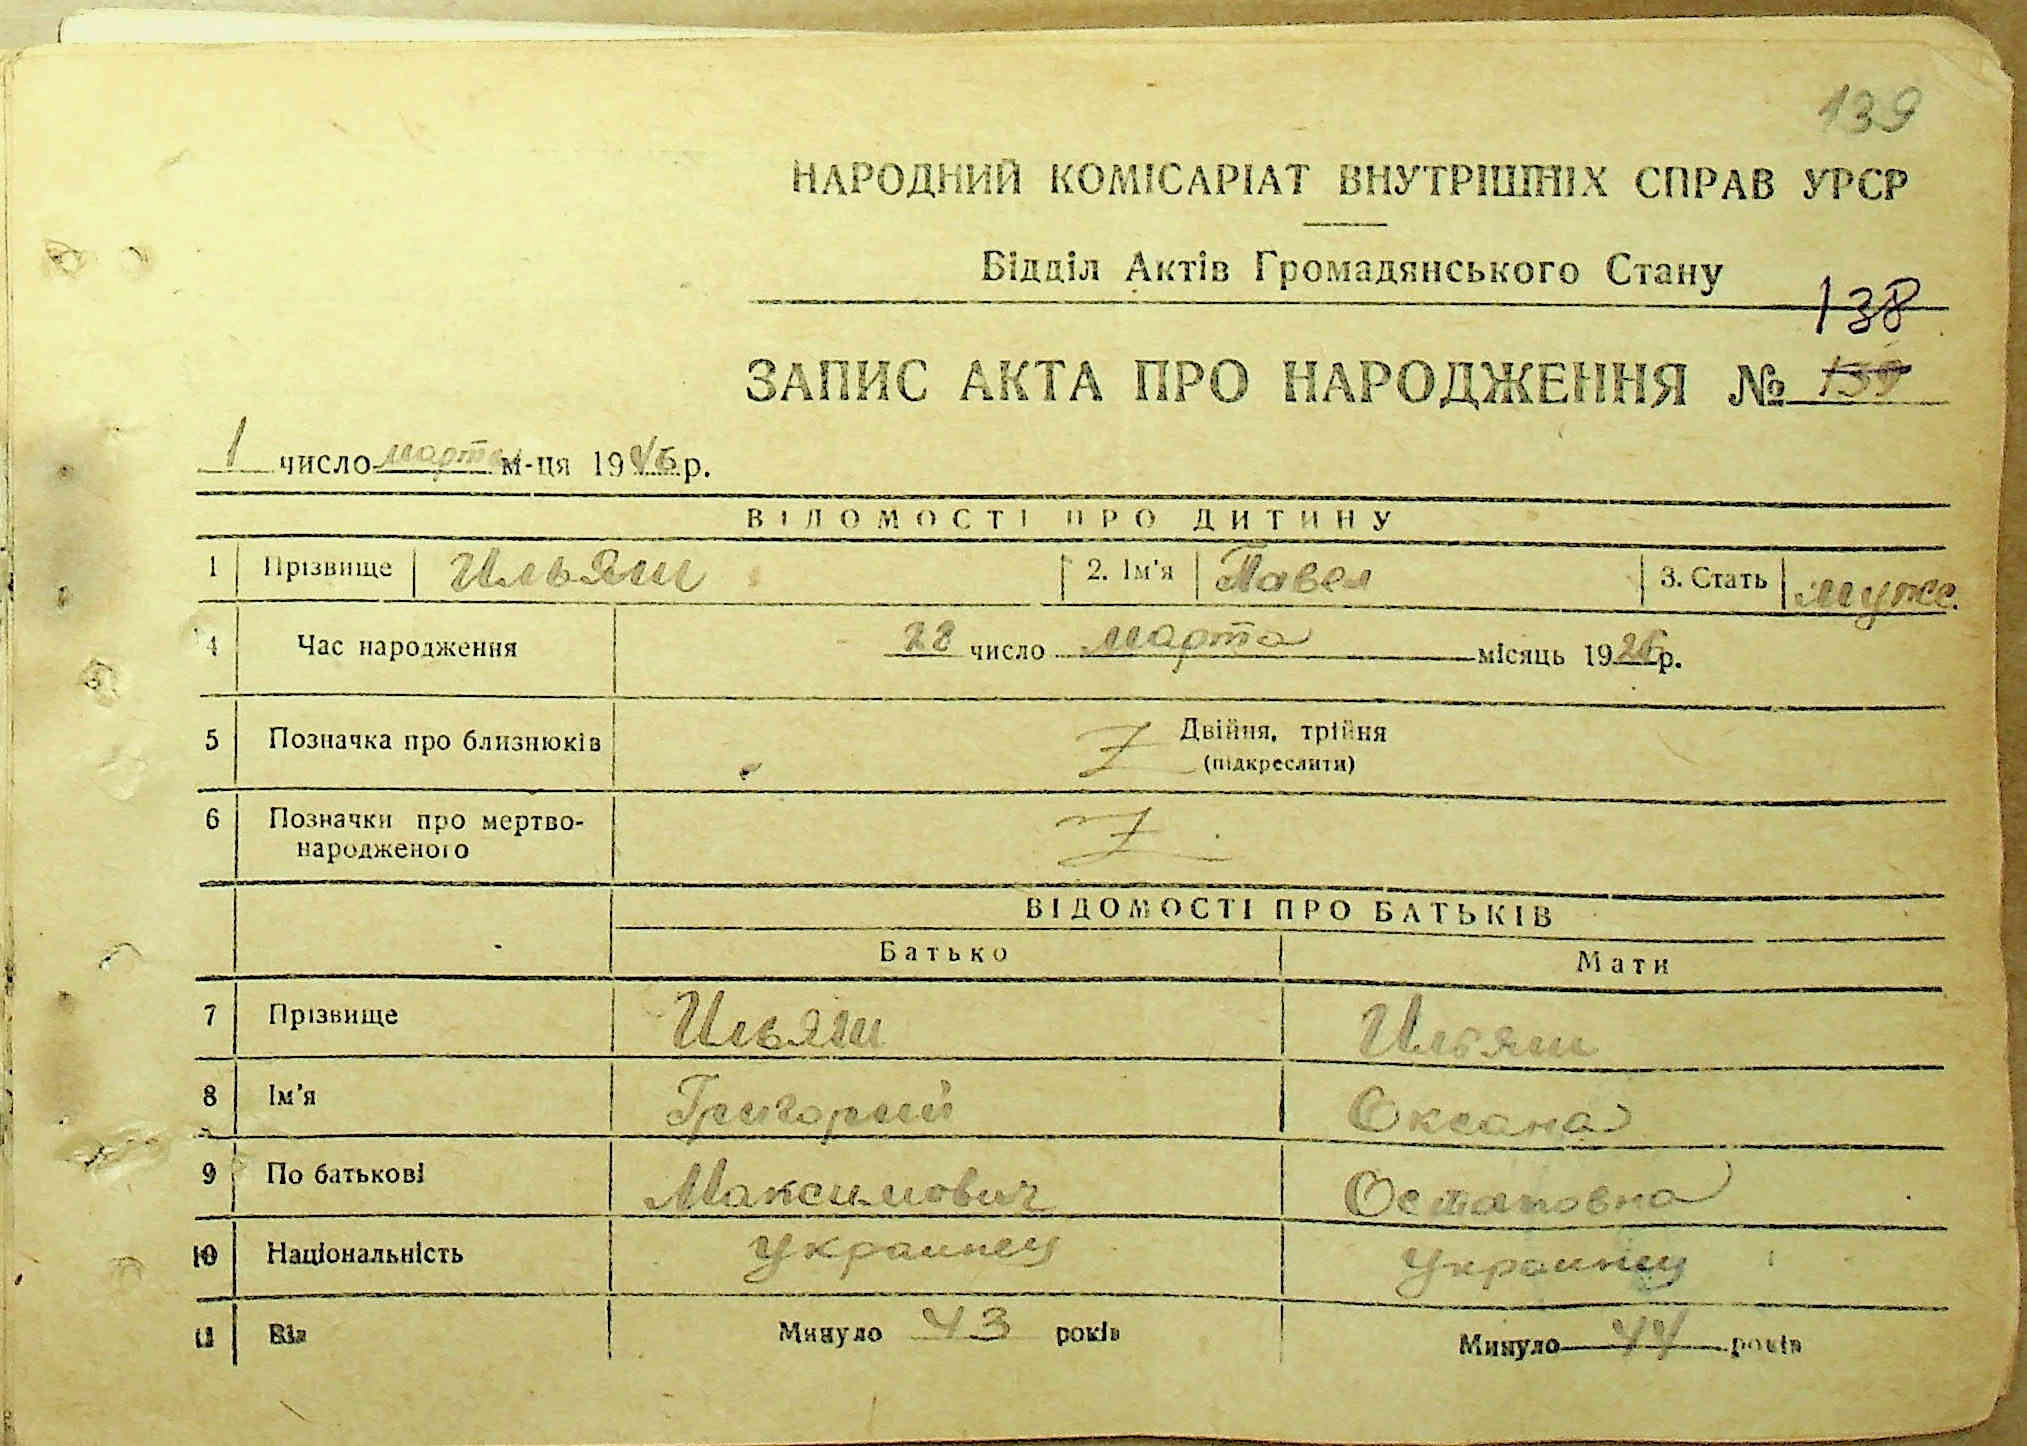 139
НАРОДНИЙ КОМІСАРІАТ ВНУТРІШНІХ СПРАВ УРСР
Відділ Актів Громадянського Стану
138
ЗАПИС АКТА ПРО НАРОДЖЕННЯ № 139
1 число марта м-ця 1946 р.
ВІДОМОСТІ ПРО ДИТИНУ
1 Прізвище Ильяш 2. Ім'я Павел 3. Стать мужс.
4 Час народження 28 число марта місяць 1926 р.
5 Позначка про близнюків Z Двійня, трійня
(підкреслити)
6 Позначки про мертво-
народженого Z
ВІДОМОСТІ ПРО БАТЬКІВ
Батько Мати
7 Прізвище Ильяш Ильяш
8 Ім'я Григорий Оксана
9 По батькові Максимович Остаповна
10 Національність Украинец Украинец
11 Вік Минуло 43 років Минуло 44 років